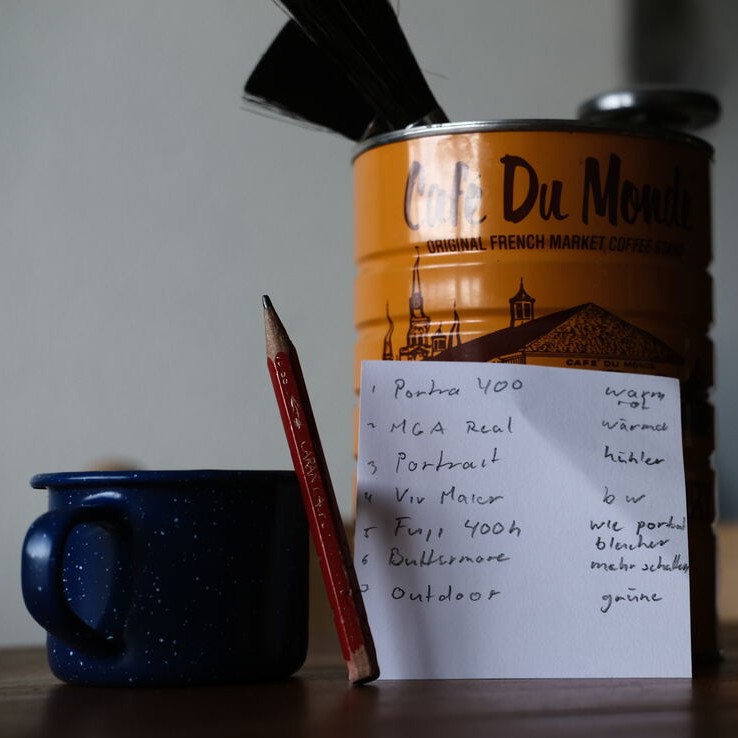 Café Du Monde
ORIGINAL FRENCH MARKET COFFEE STAND
CAFE DU MONDE
1 Portra 400 warm
rot
2 MGA Real wärmer
3 Portrait kühler
4 Viv Maier bw
5 Fuji 400h wie portrait
bleicher
6 Buttermore mehr schatten
7 Outdoor grüne
CARAN